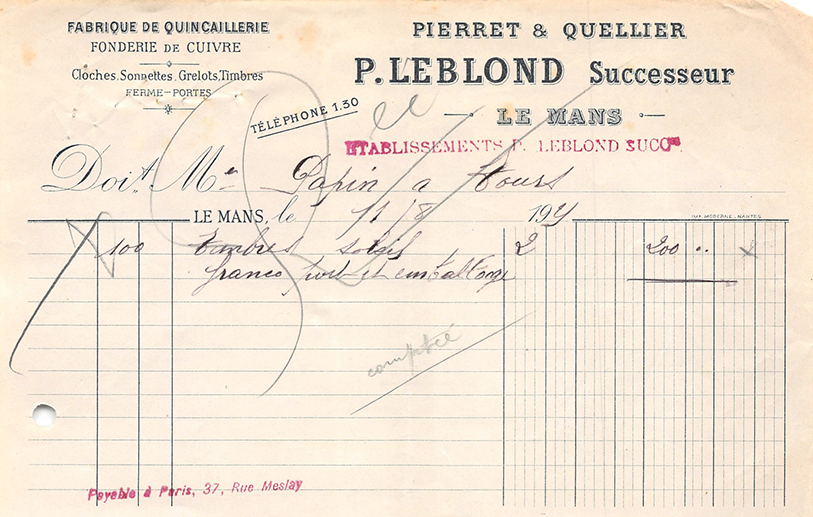 FABRIQUE DE QUINCAILLERIE
FONDERIE DE CUIVRE
Cloches, Sonnettes, Grelots, Timbres
FERME-PORTES
PIERRET & QUELLIER
P. LEBLOND Successeur
LE MANS
TÉLÉPHONE 1.30
ETABLISSEMENTS P. LEBLOND SUCC
Doit M Papin a Tours
LE MANS, le 11/8 192
IMP. MODERNE. NANTES
100 timbres 2 200 "
franco port et emballage
compté
Payable à Paris, 37, Rue Meslay